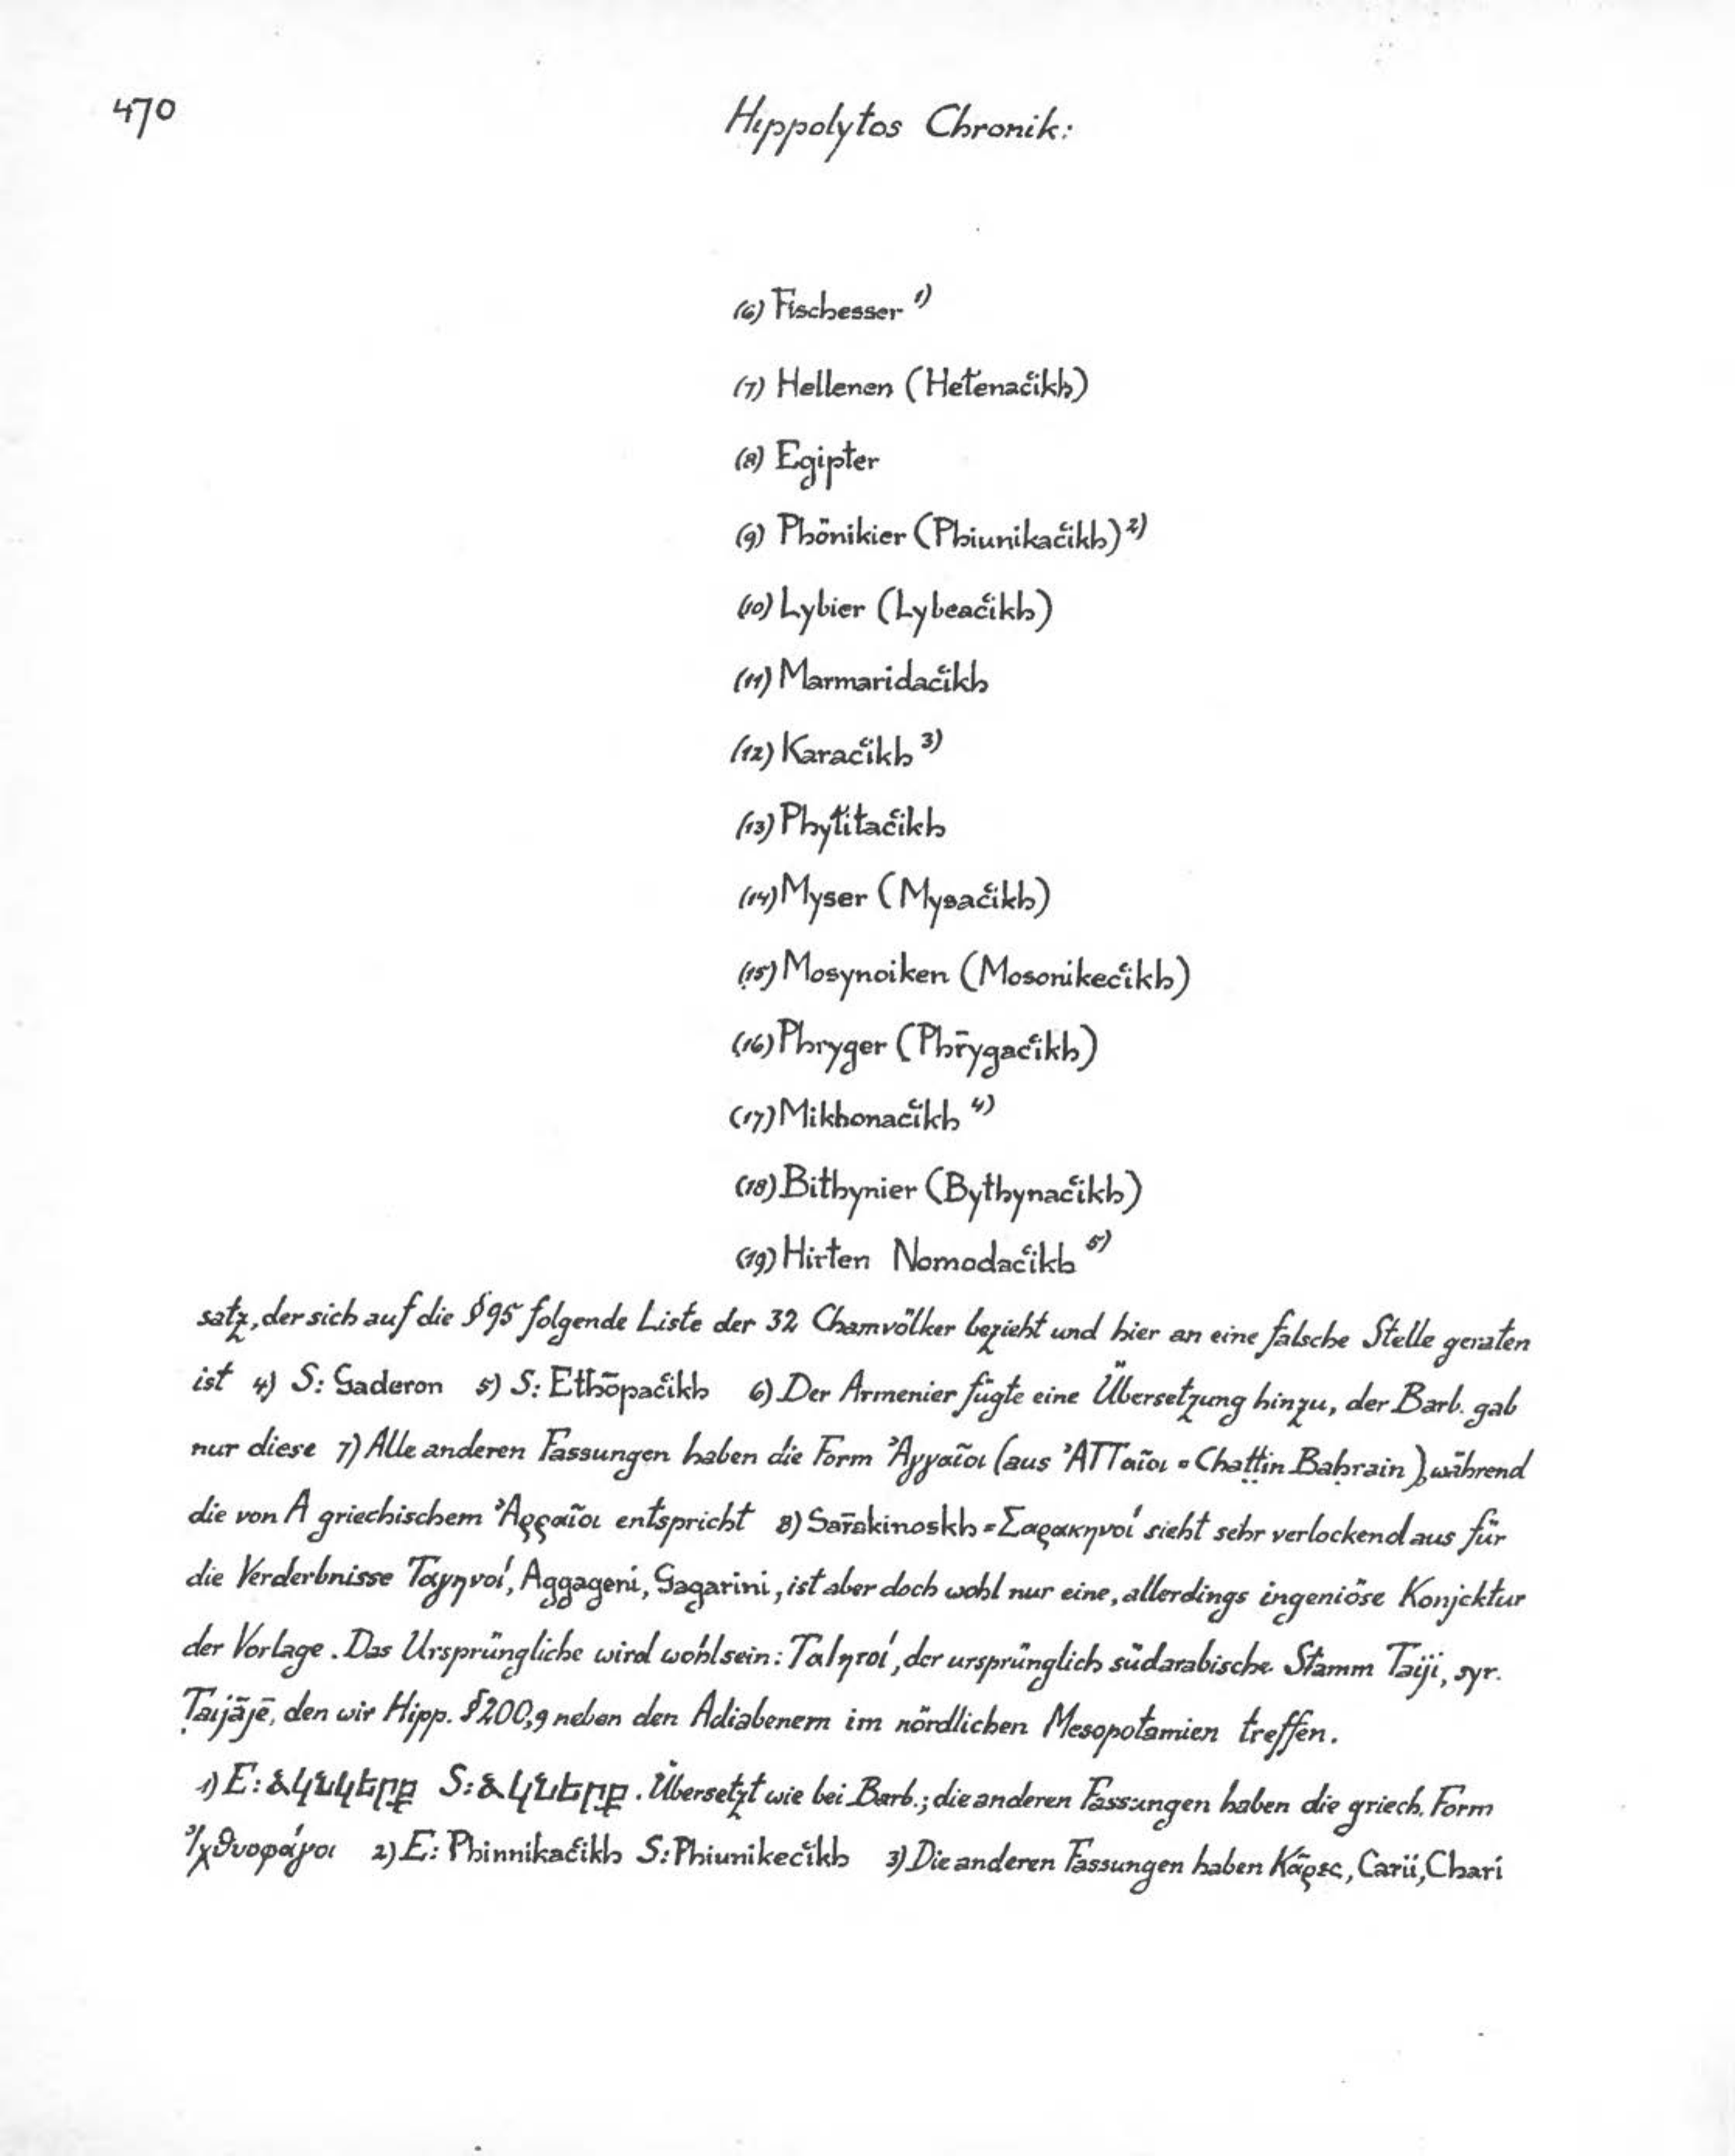 470
Hippolytos Chronik:
(6) Fischesser 1)
(7) Hellenen (Hełenac̔ikh)
(8) Egipter
(9) Phönikier (Phiunikac̔ikh) 2)
(10) Lybier (Lybeac̔ikh)
(11) Marmaridac̔ikh
(12) Karac̔ikh 3)
(13) Phyłitac̔ikh
(14) Myser (Mysac̔ikh)
(15) Mosynoiken (Mosonikec̔ikh)
(16) Phryger (Phr̄ygac̔ikh)
(17) Mikhonac̔ikh 4)
(18) Bithynier (Bythynac̔ikh)
(19) Hirten Nomodac̔ikh 5)
satz, der sich auf die §95 folgende Liste der 32 Chamvölker bezieht und hier an eine falsche Stelle geraten
ist 4) S: Gaderon 5) S: Ethōpac̔ikh 6) Der Armenier fügte eine Übersetzung hinzu, der Barb. gab
nur diese 7) Alle anderen Fassungen haben die Form Ἀγγαῖοι (aus ἈΤΤαῖοι = Chaṭṭin Baḥrain), während
die von A griechischem Ἀρραῖοι entspricht 8) Sar̄akinoskh = Σαρακηνοί sieht sehr verlockend aus für
die Verderbnisse Ταγηνοί, Aggageni, Gagarini, ist aber doch wohl nur eine, allerdings ingeniöse Konjektur
der Vorlage. Das Ursprüngliche wird wohl sein: der ursprünglich südarabische Stamm Taiji, syr.
Ṭaijājē, den wir Hipp. §200,9 neben den Adiabenern im nördlichen Mesopotamien treffen.
1) E: ձկնկերք S: ձկներք. Übersetzt wie bei Barb.; die anderen Fassungen haben die griech. Form
Ἰχθυοφάγοι 2) E: Phinnikac̔ikh S: Phiunikec̔ikh 3) Die anderen Fassungen haben Κᾶρες, Carii, Chari